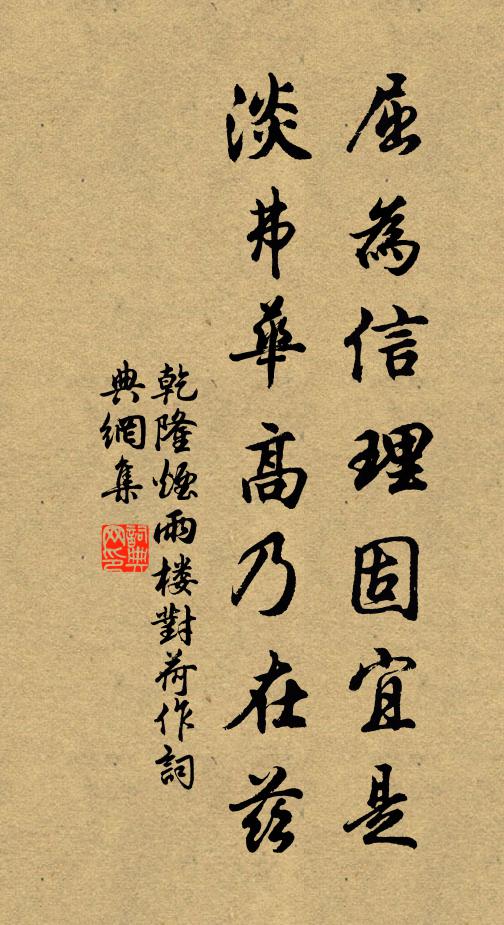 屈為信理固宜是
淡弗華高乃在茲
乾隆煙雨樓對荷作詞
典網集
詞典網印